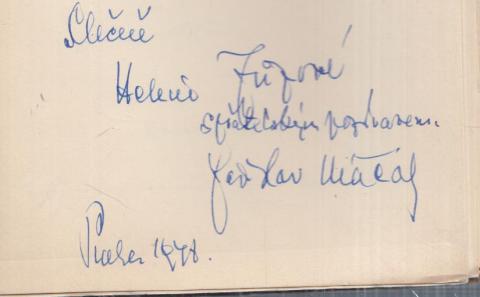 Slečně
Heleně Zůzové
s přátelským pozdravem.
Jaroslav
Praha 1948.